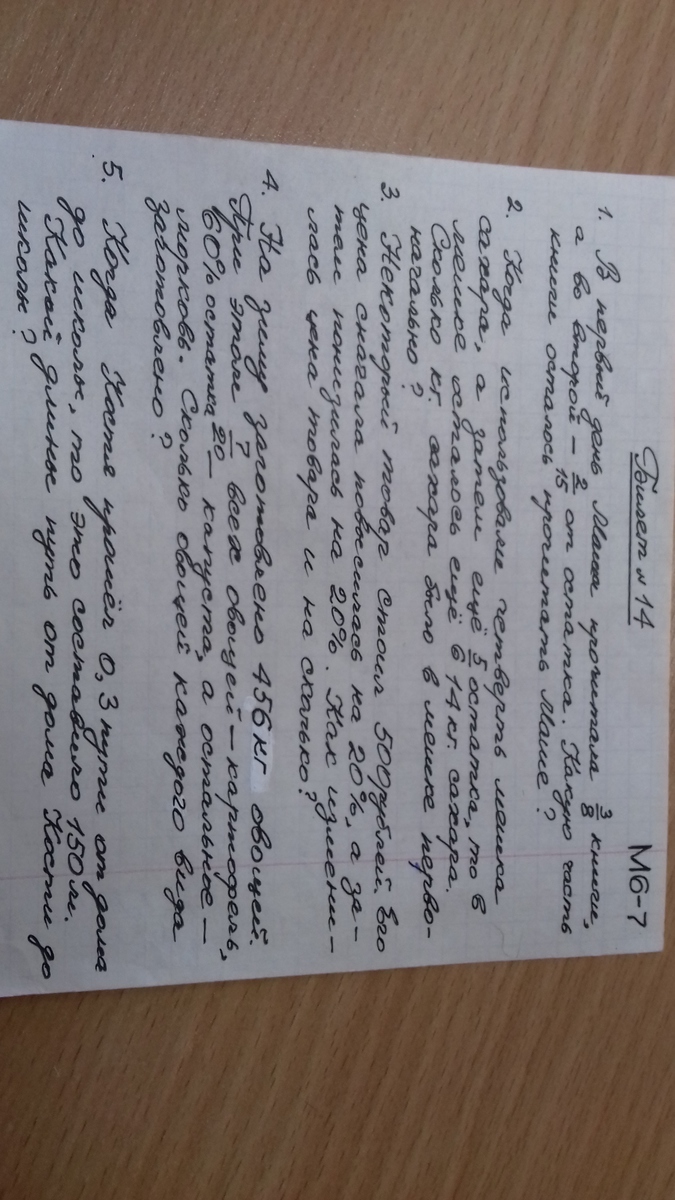 М6-7
Билет №14
1. В первый день Маша прочитала 3/8 книги,
а во второй - 2/15 от остатка. Какую часть
книги осталось прочитать Маше?
2. Когда использовали четверть мешка
сахара, а затем ещё 5/6 остатка, то в
мешке осталось ещё 14 кг. сахара.
Сколько кг. сахара было в мешке перво-
начально?
3. Некоторый товар стоил 500 рублей. Его
цена сначала повысилась на 20%, а за-
тем понизилась на 20%. Как измени-
лась цена товара и на сколько?
4. На зиму заготовлено 456 кг овощей.
При этом 7/20 всех овощей - картофель,
60% остатка - капуста, а остальное -
морковь. Сколько овощей каждого вида
заготовлено?
5. Когда Костя прошёл 0,3 пути от дома
до школы, то это составило 150 м.
Какой длины путь от дома Кости до
школы?